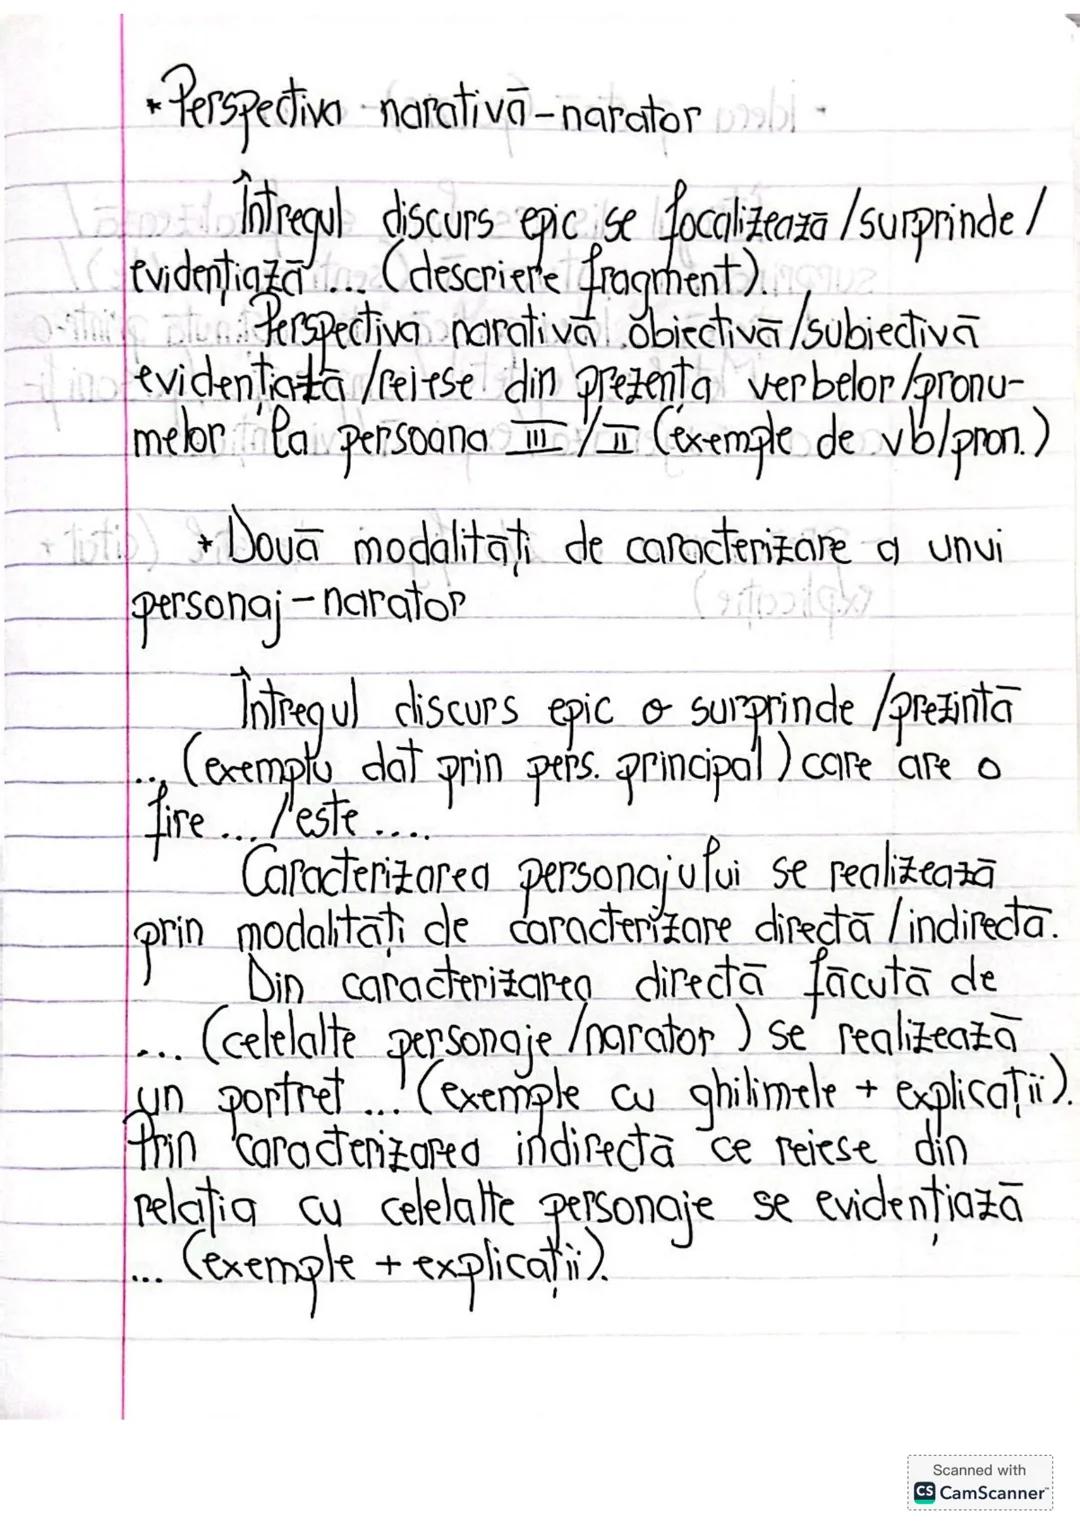 * Perspectiva narativă - narator
Întregul discurs epic se focalizează / surprinde /
evidențiază ... (descriere fragment).
Perspectiva narativă obiectivă / subiectivă
evidențiată / reiese din prezența verbelor / pronu-
melor la persoana III / II (exemple de vb/pron.)
* Două modalități de caracterizare a unui
personaj - narator
Întregul discurs epic o surprinde / prezintă
... (exemplu dat prin pers. principal) care are o
fire ... / este ....
Caracterizarea personajului se realizează
prin modalități de caracterizare directă / indirectă.
Din caracterizarea directă făcută de
... (celelalte personaje / narator) se realizează
un portret ... (exemple cu ghilimele + explicații).
Prin caracterizarea indirectă ce reiese din
relația cu celelalte personaje se evidențiază
... (exemple + explicații).
Scanned with
CS CamScanner